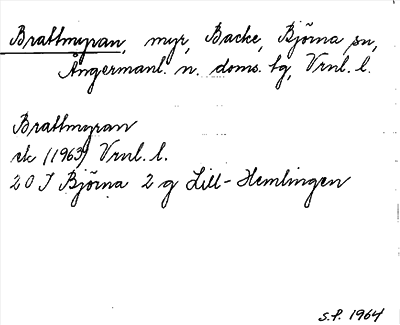 Brattmyran, myr, Backe, Björna sn,
Ångermanl. n. doms. tg, Vrnl. l.
Brattmyran
ek (1963) Vrnl. l.
20 J Björna 2 g Lill-Hemlingen
S.P. 1964